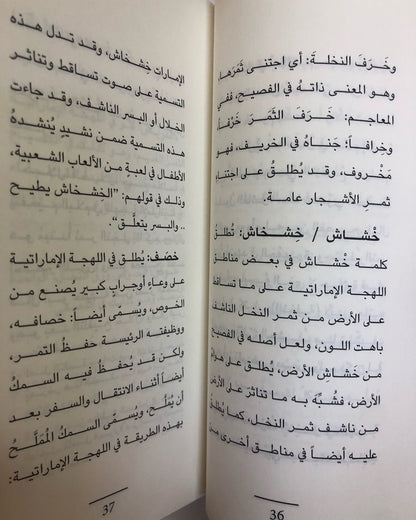 وخَرَفَ النخلةَ: أي اجتنى ثمَرَها،
وهو المعنى ذاتهُ في الفصيح، ففي
المعاجم: خَرَفَ الثمَرَ خَرْفاً
وخِرافاً؛ جَناهُ في الخريف، فهو
مَخْروف، وقد يُطلقُ على اجتناء
ثمرِ الأشجار عامة.
خُشاش / خِشخاش: تُطلقُ
كلمة خُشاش في بعض مناطق
اللهجة الإماراتية على ما تساقط
على الأرض من ثمر النخل الناشف
باهت اللون، ولعل أصله في الفصيح
من خَشاشِ الأرض، يُطلق على هوامّ
الأرض، فشُبِّهَ به ما تناثرَ على الأرض
من ناشف ثمر النخل، كما يُطلقُ
عليه أيضاً في مناطق أخرى من
36
الإمارات خِشخاش، وقد تدل هذه
التسمية على صوت تساقط وتناثر
الخلال أو البسر الناشف، وقد جاءت
هذه التسمية ضمن نشيدٍ يُنشدهُ
الأطفال في لعبةٍ من الألعاب الشعبية،
وذلك في قولهم: "الخشخاش يطيح
.. والبسر يتعلّق".
خصَف: يُطلق في اللهجة الإماراتية
على وعاءٍ أو جرابٍ كبير يُصنع من
الخوص، ويُسمّى أيضاً: خصافه،
ووظيفته الرئيسة حفظُ التمر،
ولكن قد يُحفظُ فيه السمكُ
أيضاً أثناء الانتقال والسفر بعد
أن يُمَلَّح، ويُسمّى السمكُ المُمَلَّحُ
بهذه الطريقة في اللهجة الإماراتية:
37